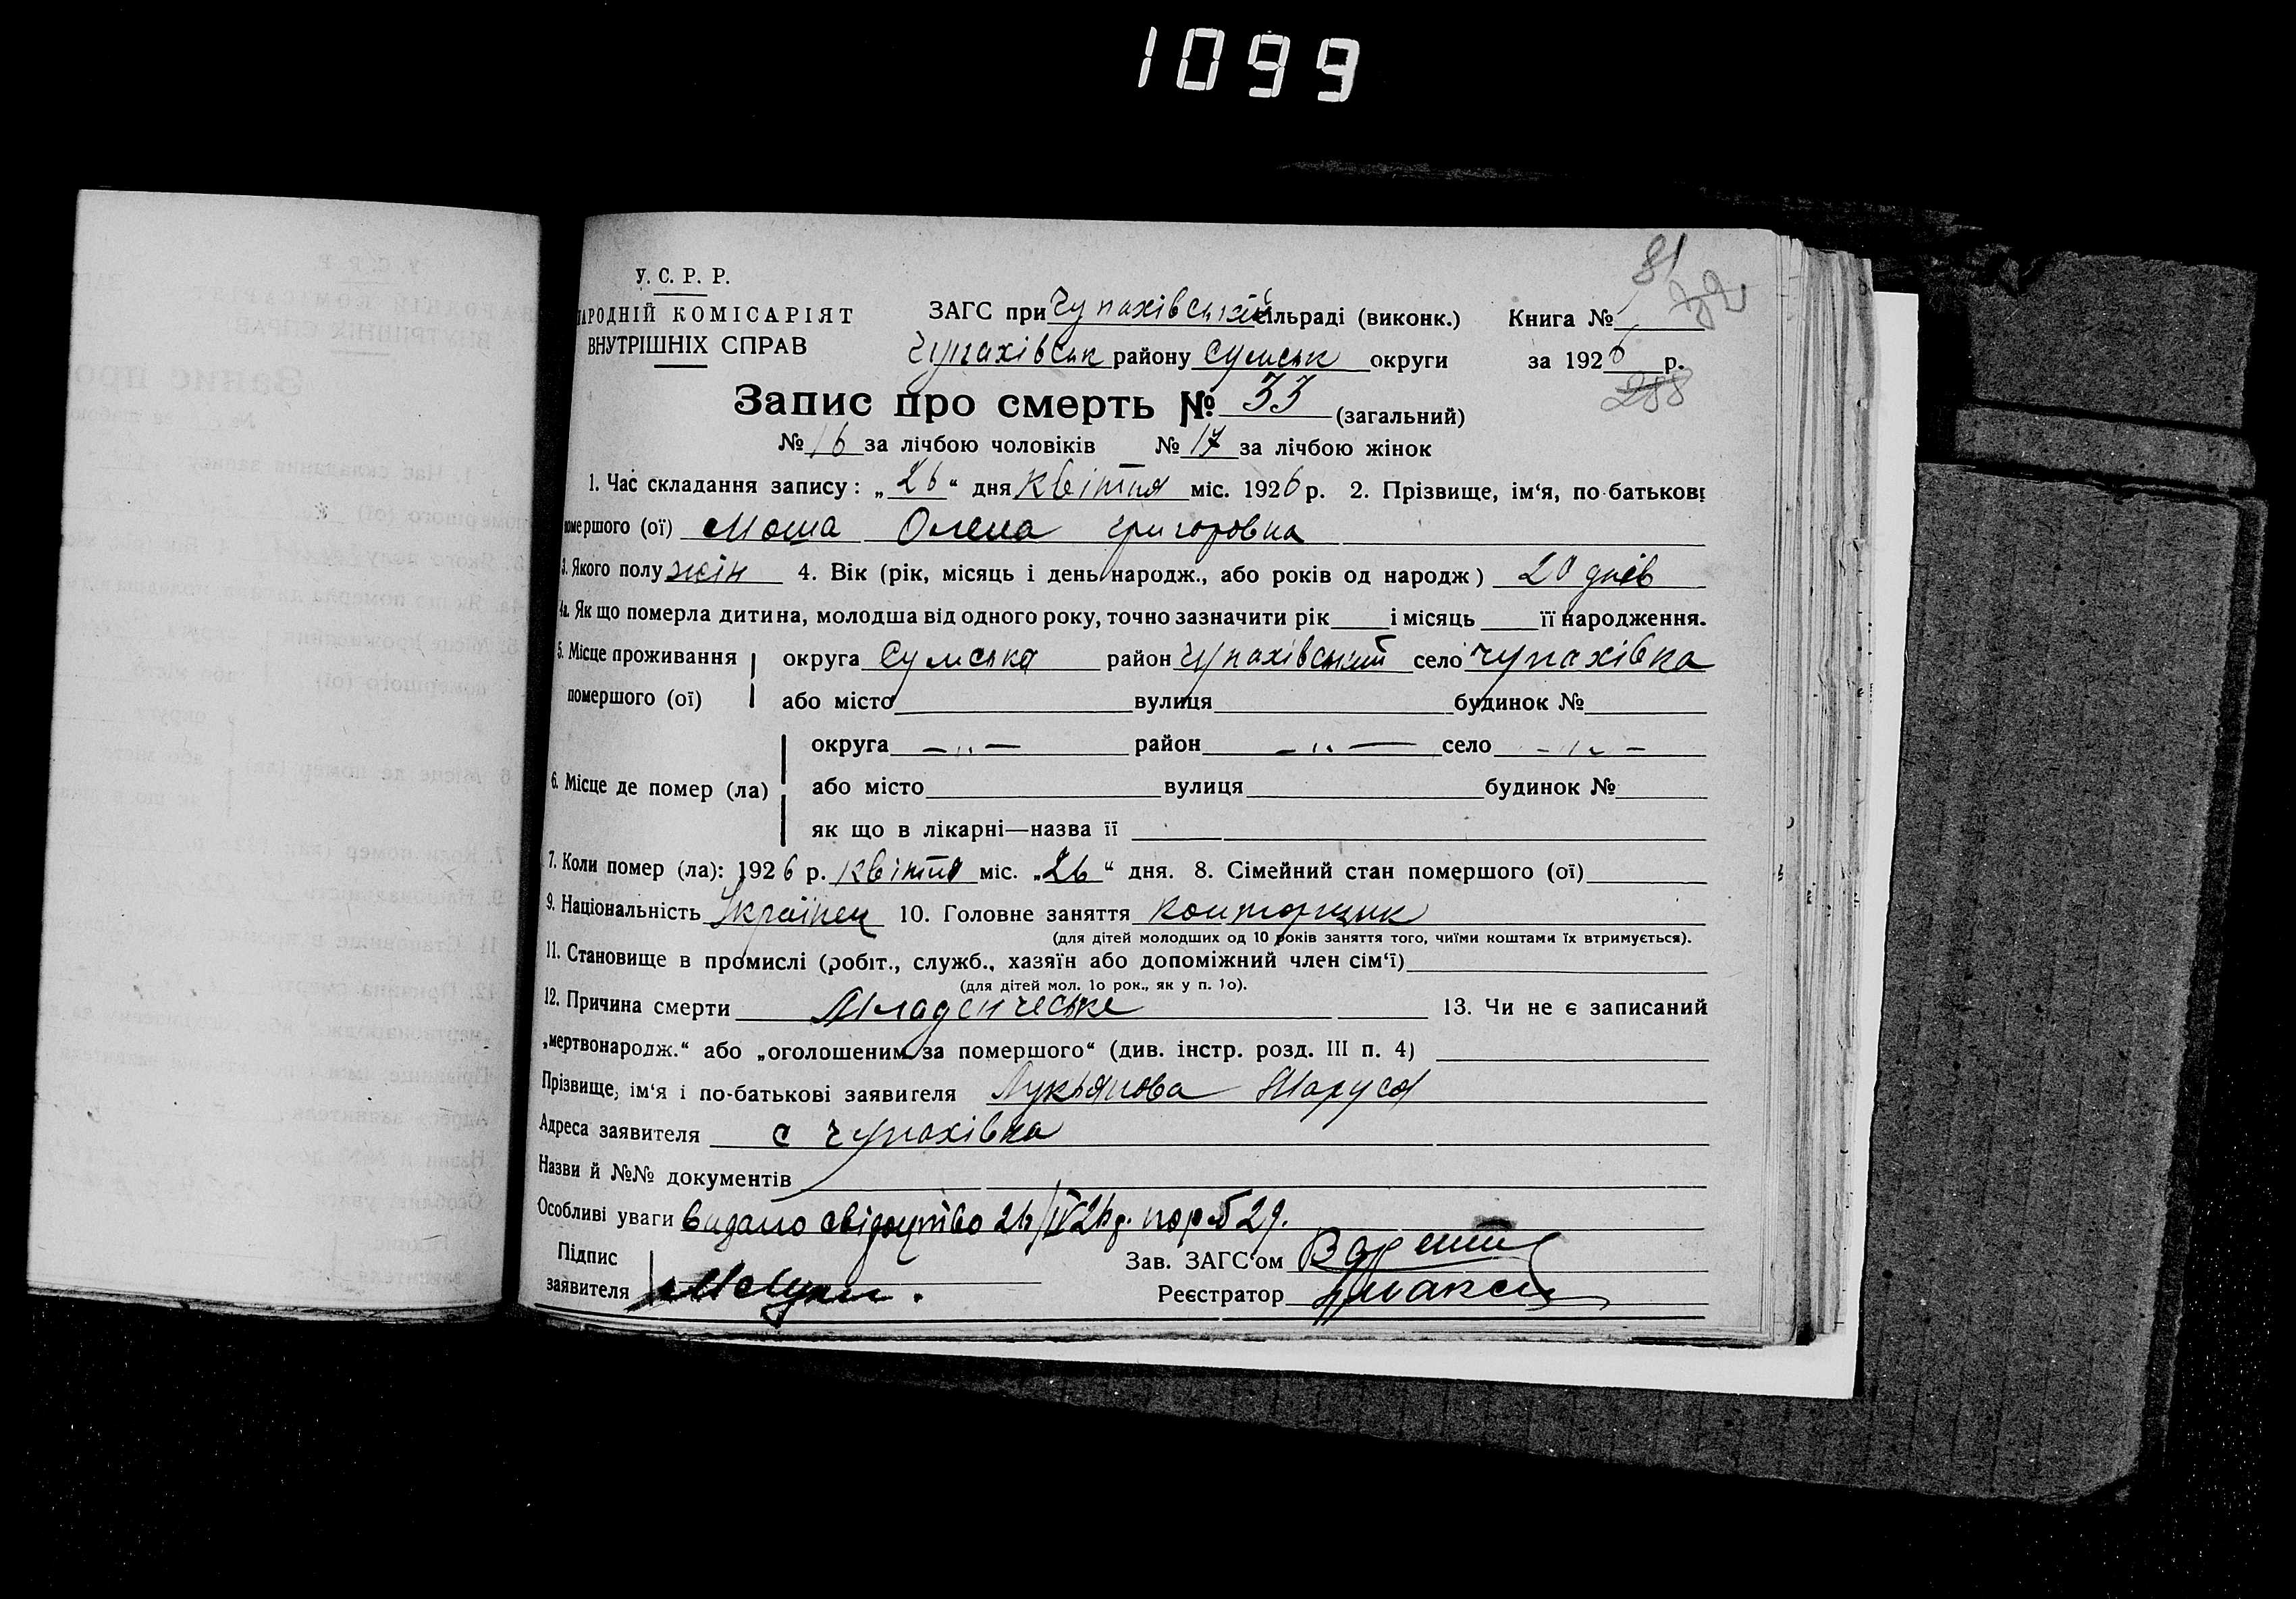 1099
81
У. С. Р. Р.
НАРОДНІЙ КОМІСАРІЯТ
ВНУТРІШНІХ СПРАВ
ЗАГС при Чупахівській сільраді (виконк.) Книга №
Чупахівськ району Сумськ округи за 1926 р.
288
Запис про смерть № 33 (загальний)
№ 16 за лічбою чоловіків № 17 за лічбою жінок
1. Час складання запису: „26“ дня Квітня міс. 1926 р. 2. Прізвище, ім‘я, по-батькові
помершого (ої) Моша Олена Григоровна
3. Якого полу жін 4. Вік (рік, місяць і день народж., або років од народж) 20 днів
4а. Як що померла дитина, молодша від одного року, точно зазначити рік і місяць її народження.
5. Місце проживання округа Сумська район Чупахівський село Чупахівка
помершого (ої) або місто вулиця будинок №
округа —„— район —„— село —„—
6. Місце де помер (ла) або місто вулиця будинок №
як що в лікарні—назва її
7. Коли помер (ла): 1926 р. Квітня міс. „26“ дня. 8. Сімейний стан помершого (ої)
9. Національність Українец 10. Головне заняття конторщик
(для дітей молодших од 10 років заняття того, чиїми коштами їх втримується).
11. Становище в промислі (робіт., служб., хазяїн або допоміжний член сім‘ї)
(для дітей мол. 1о рок., як у п. 1о).
12. Причина смерти Младенческе 13. Чи не є записаний
„мертвонародж.“ або „оголошеним за помершого“ (див. інстр. розд. III п. 4)
Прізвище, ім‘я і по-батькові заявителя Лукьянова Маруся
Адреса заявителя с Чупахівка
Назви й №№ документів
Особливі уваги Видано свідоцтво 26/IV 26 р. пор № 29.
Підпис
заявителя
Зав. ЗАГС‘ом
Реєстратор